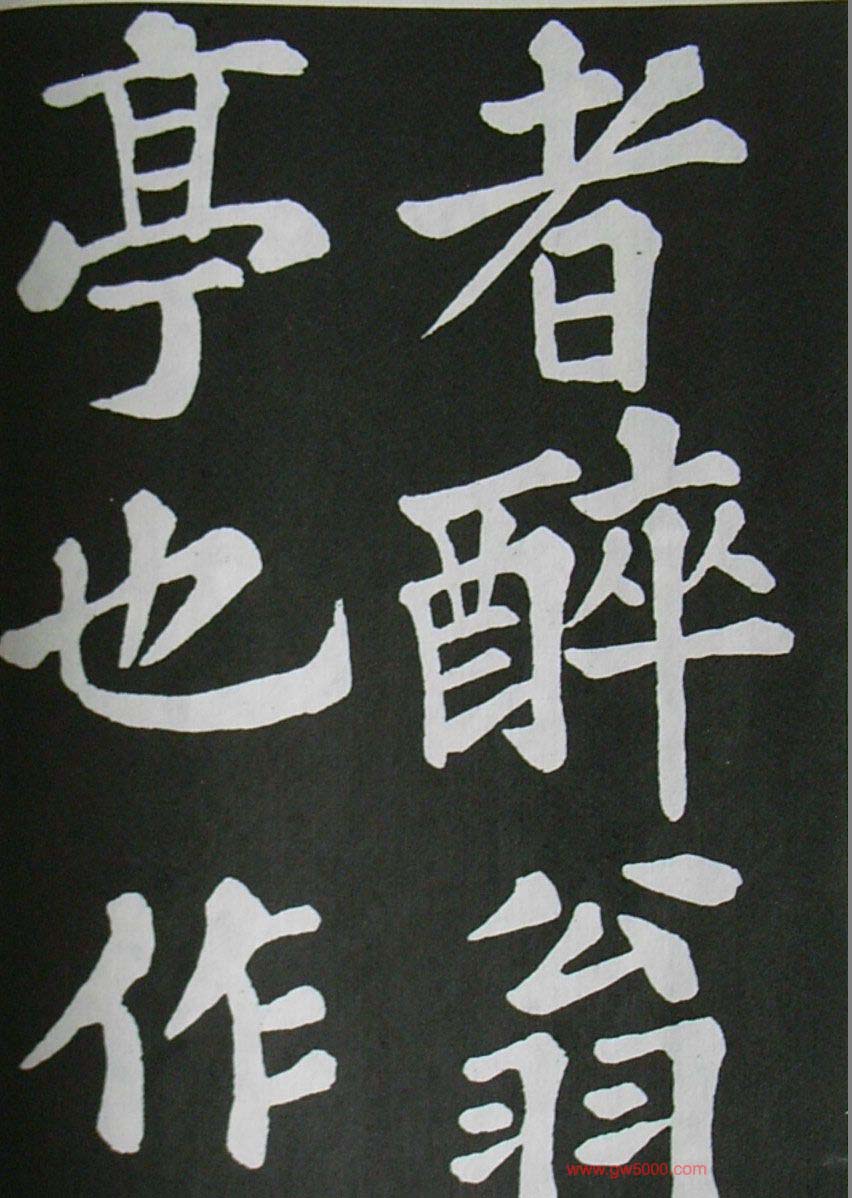 者醉翁
亭也作
www.gw5000.com